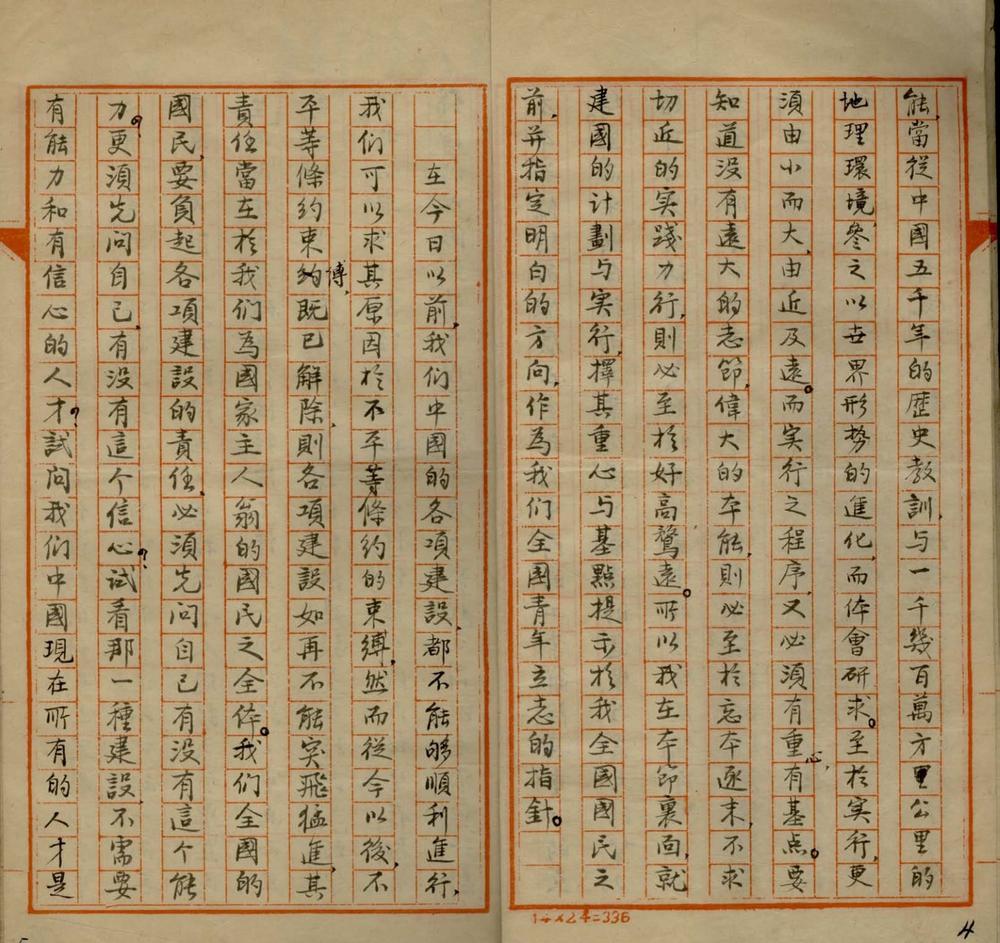 能，當從中國五千年的歷史教訓，与一千幾百萬方里公里的
地理環境，叅之以世界形势的進化，而体會研求。至於实行，更
須由小而大，由近及遠。而实行之程序，又必須有重心，有基点。要
知道没有遠大的志節，偉大的本能，則必至於忘本逐末，不求
切近的实踐力行，則必至於好高騖遠。所以我在本節裏面，就
建國的计劃与实行，擇其重心与基點提示於我全國國民之
前，并指定明白的方向，作為我们全國青年立志的指針。
在今日以前，我们中國的各項建設，都不能够順利進行，
我们可以求其原因於不平等條约的束縛，然而從今以後，不
平等條约束約縛，既已解除，則各項建設如再不能突飛猛進，其
責任當在於我们為國家主人翁的國民之全体。我们全國的
國民，要負起各項建設的責任，必須先问自己有没有這个能
力？更須先问自己，有没有這个信心？试看那一種建設，不需要
有能力和有信心的人才？試问我们中國現在所有的人才是
14×24=336
4
5